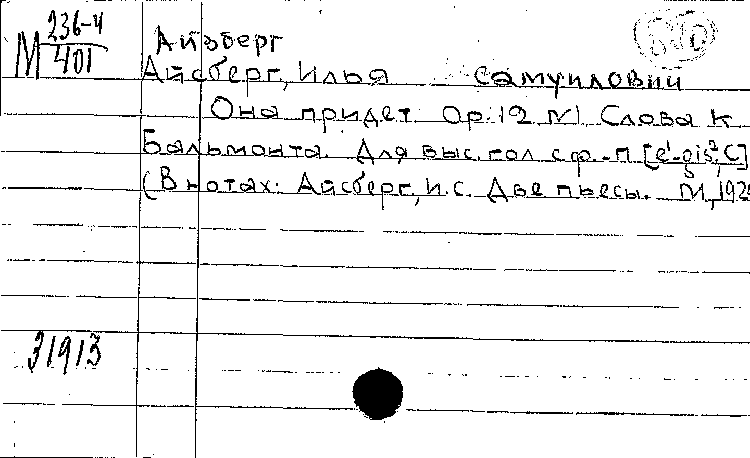 М 236-4
401
Айзберг
Айсберг, Илья Самуилович
Она придет. Op. 12 N 1 Слова К
Бальмонта. Для выс. гол с ф.-п [e¹-gis², C]
(В нотах: Айсберг, И.С. Две пьесы. М, 192
31913